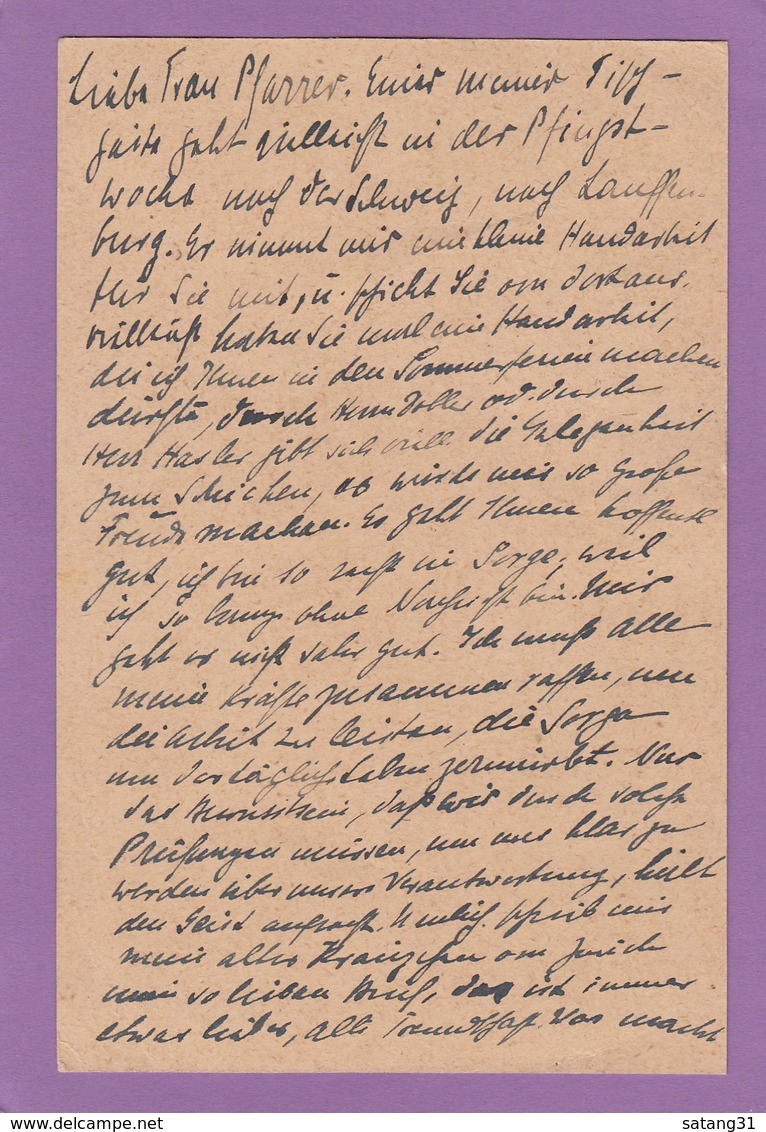 Liebe Frau Pfarrer. Einer meiner Tisch-
gäste geht vielleicht in der Pfingst-
woche nach der Schweiz, nach Lauffen-
burg. Er nimmt mir eine kleine Handarbeit
für Sie mit, u. schickt Sie von dort aus.
Vielleicht haben Sie mal eine Handarbeit,
die ich Ihnen in den Sommerferien machen
dürfte, durch od. durch
Herr Hasler gibt sich viell. die Gelegenheit
zum Schicken, es würde mir so große
Freude machen. Es geht Ihnen hoffentl.
gut, ich bin so recht in Sorge, weil
ich so lange ohne Nachricht bin. Mir
geht es nicht sehr gut. Ich muß alle
meine Kräfte zusammen raffen, um
die Arbeit zu leisten, die Sorge
um das tägliche Leben zermürbt. Nur
das Bewußtsein, daß wir durch solche
Prüfungen müssen, um uns klar zu
werden über unsere Verantwortung, hält
den Geist aufrecht. Neulich schrieb mir
mein altes Kränzchen von Zürich
so lieben Brief, das ist immer
etwas liebes, alte Freundschaft. Was macht
delcampe.net
satang31